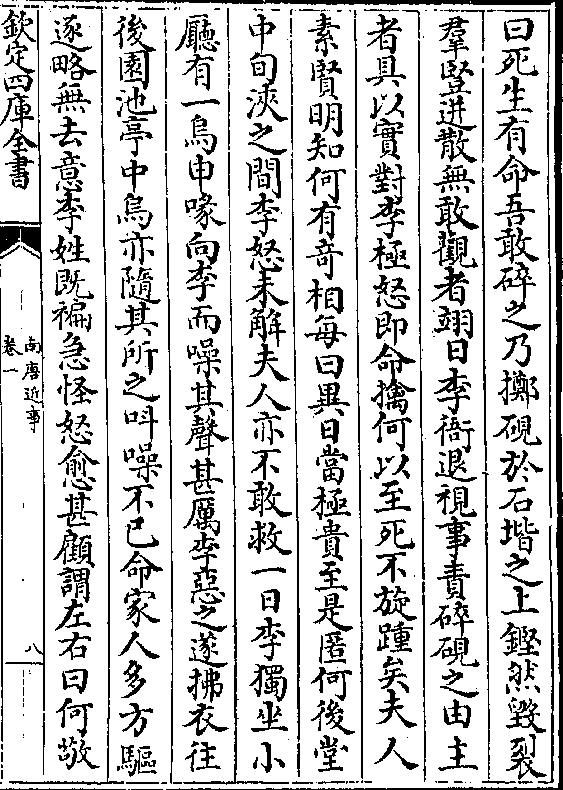 曰死生有命吾敢碎之乃擲硯於石堦之上鏗然毀裂
羣豎迸散無敢觀者翊日李衙退視事責碎硯之由主
者具以實對李極怒即命擒何以至死不旋踵矣夫人
素賢明知何有竒相每曰異日當極貴至是匿何後堂
中旬浹之間李怒未解夫人亦不敢救一日李獨坐小
廳有一烏申喙向李而噪其聲甚厲李惡之遂拂衣往
後園池亭中烏亦隨其所之叫噪不已命家人多方驅
逐略無去意李姓既褊急怪怒愈甚顧謂左右曰何敬
欽定四庫全書
南唐近事
卷一
八